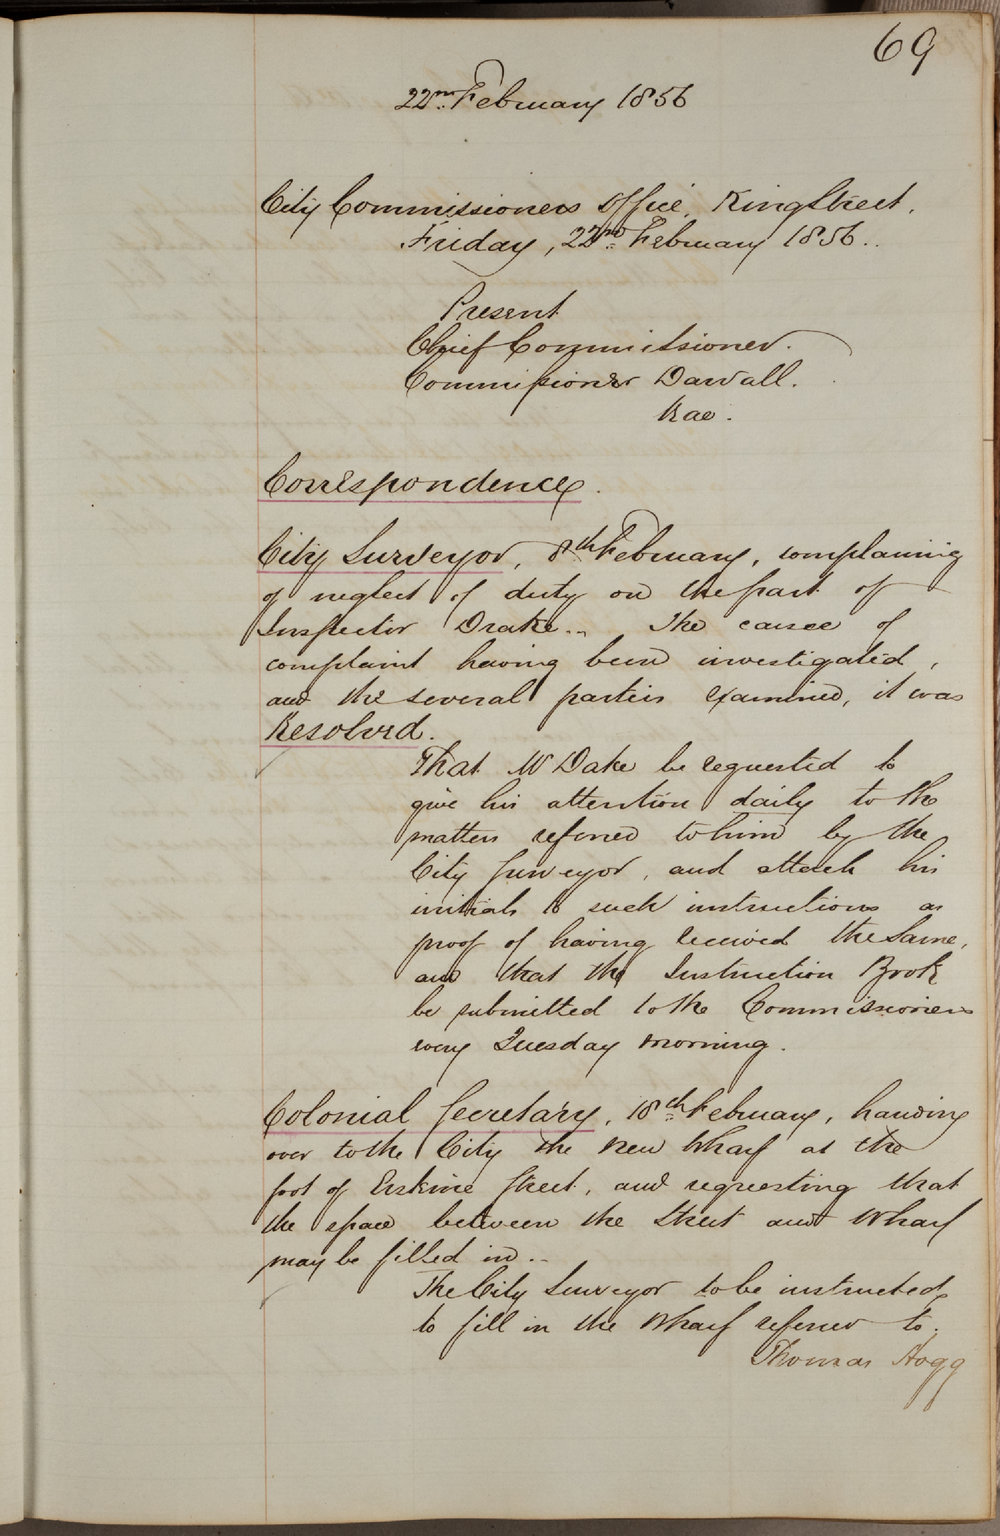 69
22nd February 1856
City Commissioners Office, King Street.
Friday, 22nd February 1856..
Present
Chief Commissioner.
Commissioner Darvall.
Rae.
Correspondence.
City Surveyor, 8th February, complaining
of neglect of duty on the part of
Inspector Drake... The cause of
complaint having been investigated,
and the several parties examined, it was
Resolved.
That Mr Dake be requested to
give his attention daily to the
matters referred to him by the
City Surveyor, and attach his
initials to such instructions as
proof of having received the same,
and that the Instruction Book
be submitted to the Commissioners
every Tuesday morning.
Colonial Secretary, 18th February, handing
over to the City the new Wharf at the
foot of Erskine Street, and requesting that
the space between the Street and Wharf
may be filled in..
The City Surveyor to be instructed
to fill in the Wharf referred to.
Thomas Hogg